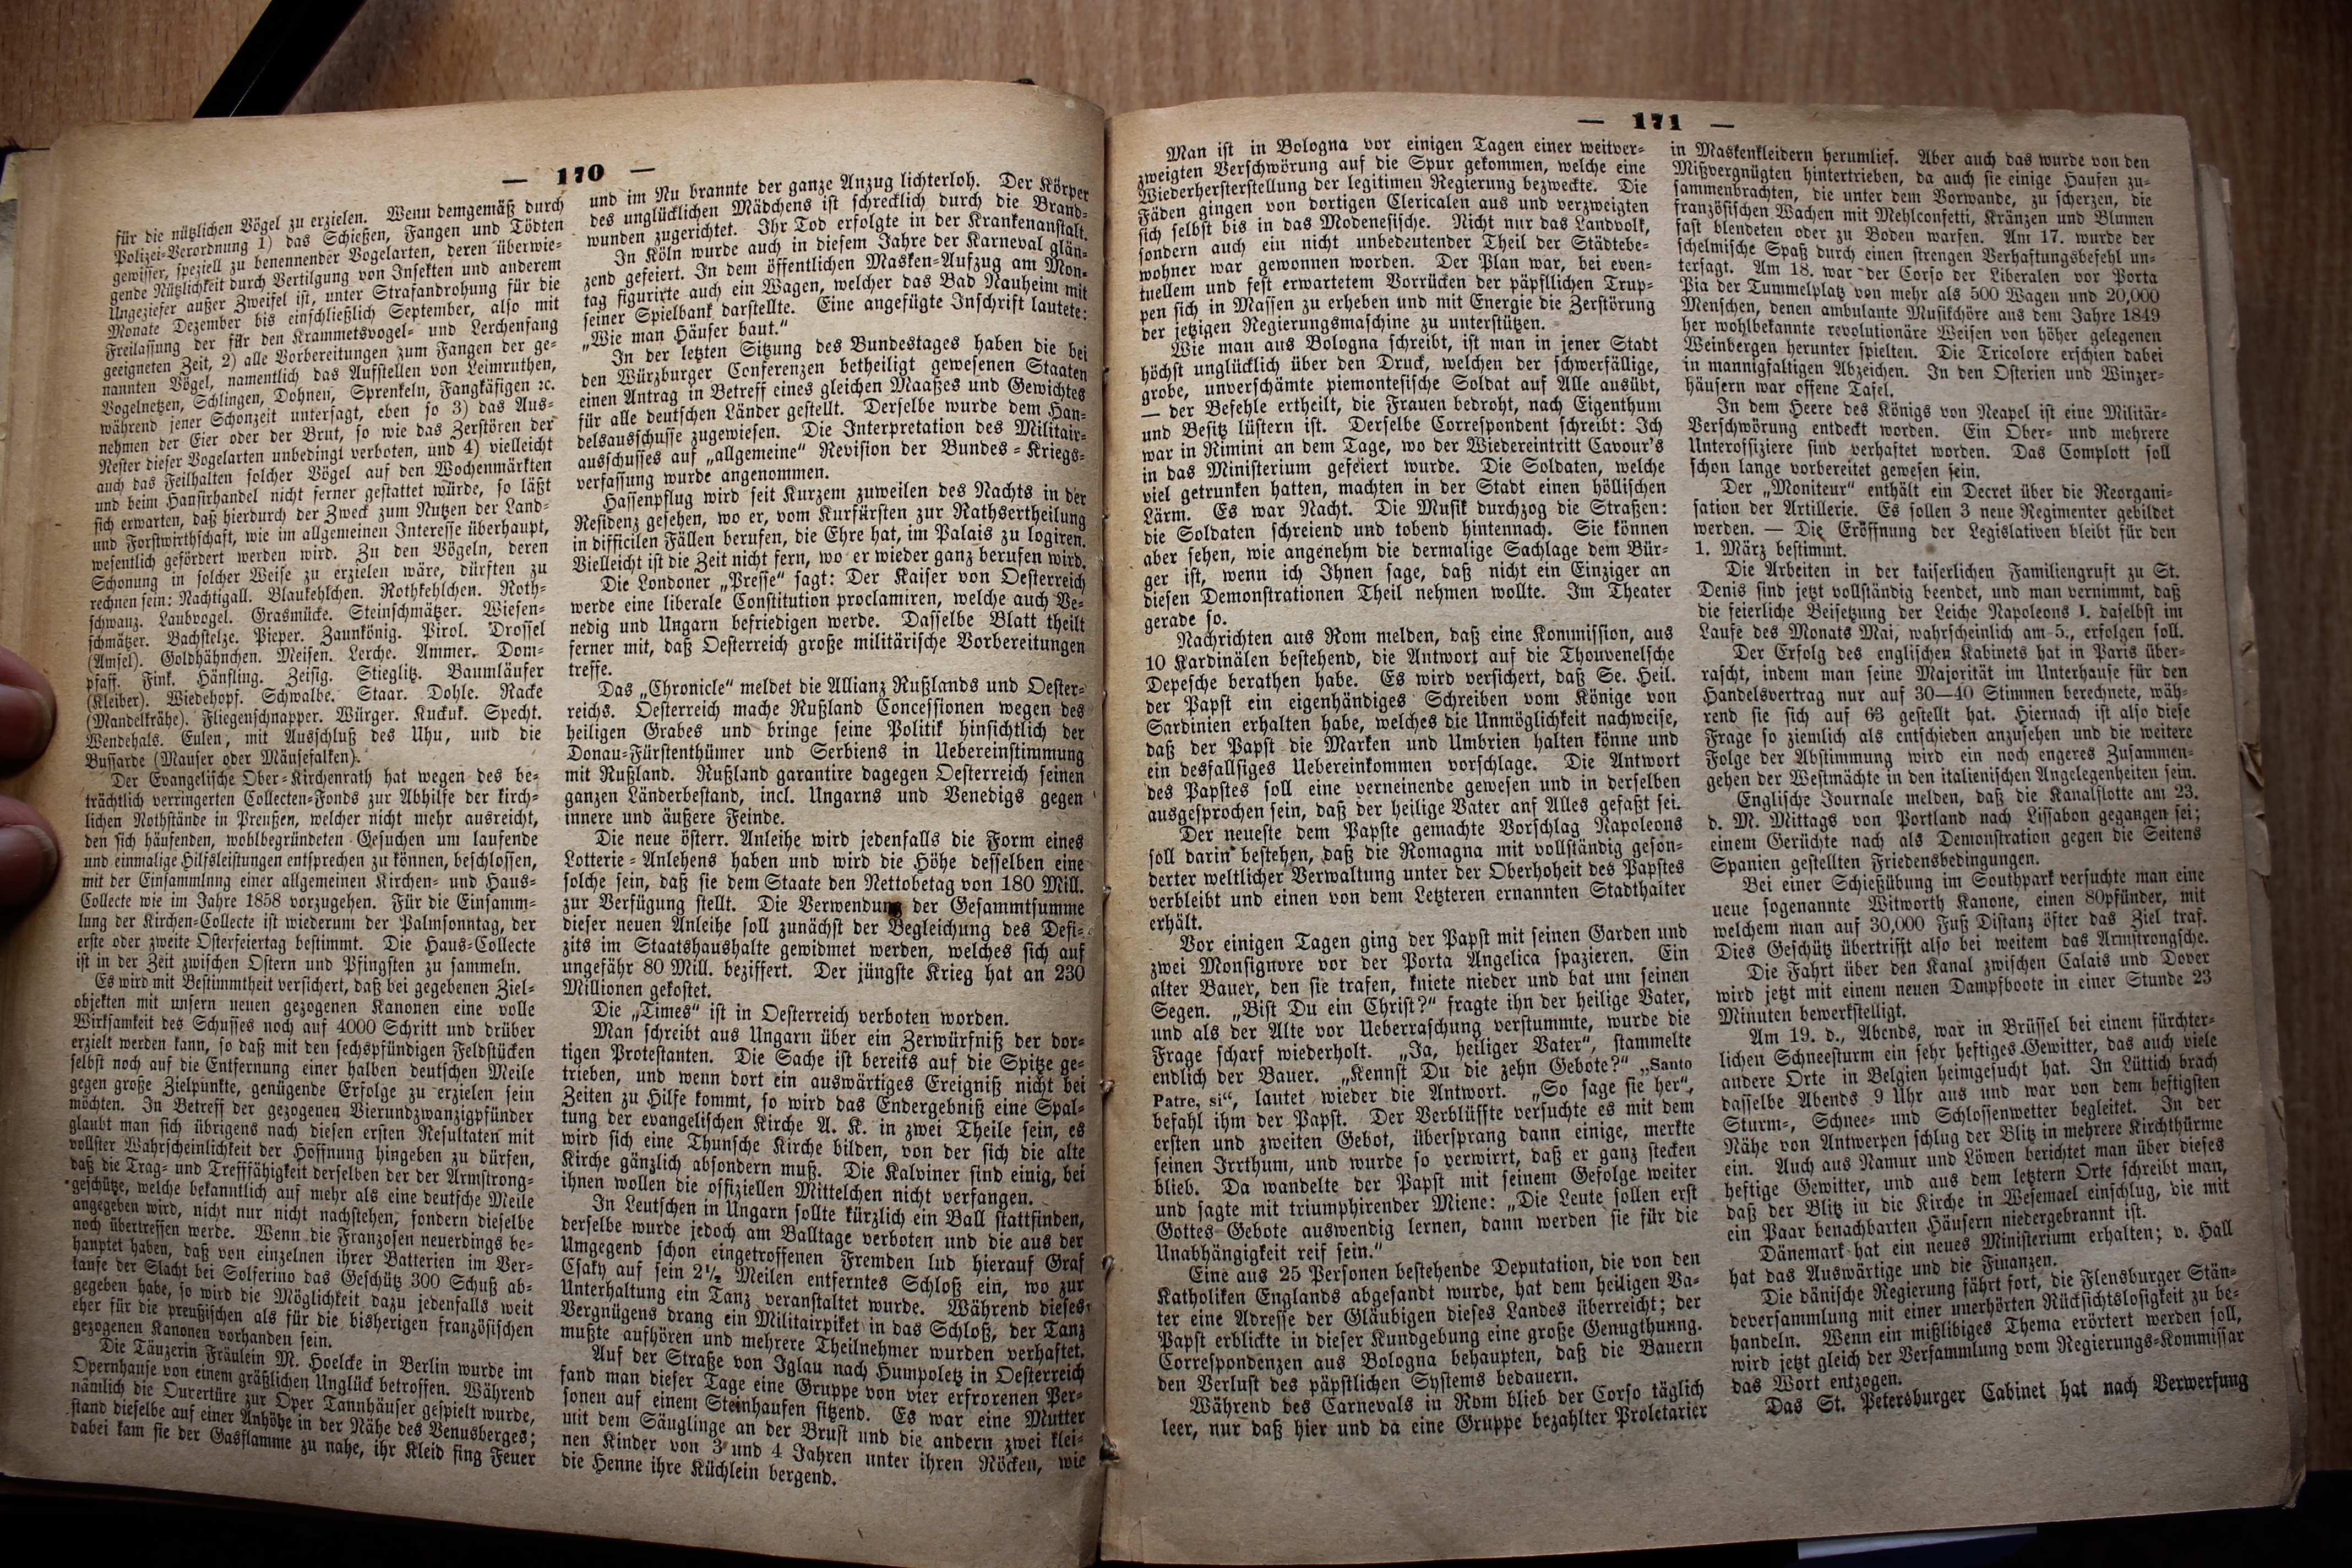 — 170 —
für die nützlichen Vögel zu erzielen. Wenn demgemäß durch
Polizei-Verordnung 1) das Schießen, Fangen und Tödten
gewisser, speziell zu benennender Vogelarten, deren überwie-
gende Nützlichkeit durch Vertilgung von Insekten und anderem
Ungeziefer außer Zweifel ist, unter Strafandrohung für die
Monate Dezember bis einschließlich September, also mit
Freilassung der für den Krammetsvogel- und Lerchenfang
geeigneten Zeit, 2) alle Vorbereitungen zum Fangen der ge-
nannten Vögel, namentlich das Aufstellen von Leimruthen,
Vogelnetzen, Schlingen, Dohnen, Sprenkeln, Fangkäfigen ꝛc.
während jener Schonzeit untersagt, eben so 3) das Aus-
nehmen der Eier oder der Brut, so wie das Zerstören der
Nester dieser Vogelarten unbedingt verboten, und 4) vielleicht
auch das Feilhalten solcher Vögel auf den Wochenmärkten
und beim Hausirhandel nicht ferner gestattet würde, so läßt
sich erwarten, daß hierdurch der Zweck zum Nutzen der Land-
und Forstwirthschaft, wie im allgemeinen Interesse überhaupt,
wesentlich gefördert werden wird. Zu den Vögeln, deren
Schonung in solcher Weise zu erzielen wäre, dürften zu
rechnen sein: Nachtigall. Blaukehlchen. Rothkehlchen. Roth-
schwanz. Laubvogel. Grasmücke. Steinschmätzer. Wiesen-
schmätzer. Bachstelze. Pieper. Zaunkönig. Pirol. Drossel
(Amsel). Goldhähnchen. Meisen. Lerche. Ammer. Dom-
pfaff. Fink. Hänfling. Zeisig. Stieglitz. Baumläufer
(Kleiber). Wiedehopf. Schwalbe. Staar. Dohle. Racke
(Mandelkrähe). Fliegenschnapper. Würger. Kuckuk. Specht.
Wendehals. Eulen, mit Ausschluß des Uhu, und die
Bussarde (Mauser oder Mäusefalken).
Der Evangelische Ober-Kirchenrath hat wegen des be-
trächtlich verringerten Collecten-Fonds zur Abhilfe der kirch-
lichen Nothstände in Preußen, welcher nicht mehr ausreicht,
den sich häufenden, wohlbegründeten Gesuchen um laufende
und einmalige Hilfsleistungen entsprechen zu können, beschlossen,
mit der Einsammlnng einer allgemeinen Kirchen- und Haus-
Collecte wie im Jahre 1858 vorzugehen. Für die Einsamm-
lung der Kirchen-Collecte ist wiederum der Palmsonntag, der
erste oder zweite Osterfeiertag bestimmt. Die Haus-Collecte
ist in der Zeit zwischen Ostern und Pfingsten zu sammeln.
Es wird mit Bestimmtheit versichert, daß bei gegebenen Ziel-
objekten mit unsern neuen gezogenen Kanonen eine volle
Wirksamkeit des Schusses noch auf 4000 Schritt und drüber
erzielt werden kann, so daß mit den sechspfündigen Feldstücken
selbst noch auf die Entfernung einer halben deutschen Meile
gegen große Zielpunkte, genügende Erfolge zu erzielen sein
möchten. In Betreff der gezogenen Vierundzwanzigpfünder
glaubt man sich übrigens nach diesen ersten Resultaten mit
vollster Wahrscheinlichkeit der Hoffnung hingeben zu dürfen,
daß die Trag- und Trefffähigkeit derselben der der Armstrong-
geschütze, welche bekanntlich auf mehr als eine deutsche Meile
angegeben wird, nicht nur nicht nachstehen, sondern dieselbe
noch übertreffen werde. Wenn die Franzosen neuerdings be-
hauptet haben, daß von einzelnen ihrer Batterien im Ver-
laufe der Slacht bei Solferino das Geschütz 300 Schuß ab-
gegeben habe, so wird die Möglichkeit dazu jedenfalls weit
eher für die preußischen als für die bisherigen französischen
gezogenen Kanonen vorhanden sein.
Die Täuzerin Fräulein M. Hoelcke in Berlin wurde im
Opernhause von einem gräßlichen Unglück betroffen. Während
nämlich die Ouvertüre zur Oper Tannhäuser gespielt wurde,
stand dieselbe auf einer Anhöhe in der Nähe des Venusberges;
dabei kam sie der Gasflamme zu nahe, ihr Kleid fing Feuer
und im Nu brannte der ganze Anzug lichterloh. Der Körper
des unglücklichen Mädchens ist schrecklich durch die Brand-
wunden zugerichtet. Ihr Tod erfolgte in der Krankenanstalt.
In Köln wurde auch in diesem Jahre der Karneval glän-
zend gefeiert. In dem öffentlichen Masken-Aufzug am Mon-
tag figurirte auch ein Wagen, welcher das Bad Nauheim mit
seiner Spielbank darstellte. Eine angefügte Inschrift lautete:
„Wie man Häuser baut.“
In der letzten Sitzung des Bundestages haben die bei
den Würzburger Conferenzen betheiligt gewesenen Staaten
einen Antrag in Betreff eines gleichen Maaßes und Gewichtes
für alle deutschen Länder gestellt. Derselbe wurde dem Han-
delsausschusse zugewiesen. Die Interpretation des Militair-
ausschusses auf „allgemeine“ Revision der Bundes-Kriegs-
verfassung wurde angenommen.
Hassenpflug wird seit Kurzem zuweilen des Nachts in der
Residenz gesehen, wo er, vom Kurfürsten zur Rathsertheilung
in difficilen Fällen berufen, die Ehre hat, im Palais zu logiren.
Vielleicht ist die Zeit nicht fern, wo er wieder ganz berufen wird.
Die Londoner „Presse“ sagt: Der Kaiser von Oesterreich
werde eine liberale Constitution proclamiren, welche auch Ve-
nedig und Ungarn befriedigen werde. Dasselbe Blatt theilt
ferner mit, daß Oesterreich große militärische Vorbereitungen
treffe.
Das „Chronicle“ meldet die Allianz Rußlands und Oester-
reichs. Oesterreich mache Rußland Concessionen wegen des
heiligen Grabes und bringe seine Politik hinsichtlich der
Donau-Fürstenthümer und Serbiens in Uebereinstimmung
mit Rußland. Rußland garantire dagegen Oesterreich seinen
ganzen Länderbestand, incl. Ungarns und Venedigs gegen
innere und äußere Feinde.
Die neue österr. Anleihe wird jedenfalls die Form eines
Lotterie-Anlehens haben und wird die Höhe desselben eine
solche sein, daß sie dem Staate den Nettobetag von 180 Mill.
zur Verfügung stellt. Die Verwendung der Gesammtsumme
dieser neuen Anleihe soll zunächst der Begleichung des Defi-
zits im Staatshaushalte gewidmet werden, welches sich auf
ungefähr 80 Mill. beziffert. Der jüngste Krieg hat an 230
Millionen gekostet.
Die „Times“ ist in Oesterreich verboten worden.
Man schreibt aus Ungarn über ein Zerwürfniß der dor-
tigen Protestanten. Die Sache ist bereits auf die Spitze ge-
trieben, und wenn dort ein auswärtiges Ereigniß nicht bei
Zeiten zu Hilfe kommt, so wird das Endergebniß eine Spal-
tung der evangelischen Kirche A. K. in zwei Theile sein, es
wird sich eine Thunsche Kirche bilden, von der sich die alte
Kirche gänzlich absondern muß. Die Kalviner sind einig, bei
ihnen wollen die offiziellen Mittelchen nicht verfangen.
In Leutschen in Ungarn sollte kürzlich ein Ball stattfinden,
derselbe wurde jedoch am Balltage verboten und die aus der
Umgegend schon eingetroffenen Fremden lud hierauf Graf
Csaky auf sein 2½ Meilen entferntes Schloß ein, wo zur
Unterhaltung ein Tanz veranstaltet wurde. Während dieses
Vergnügens drang ein Militairpiket in das Schloß, der Tanz
mußte aufhören und mehrere Theilnehmer wurden verhaftet.
Auf der Straße von Iglau nach Humpoletz in Oesterreich
fand man dieser Tage eine Gruppe von vier erfrorenen Per-
sonen auf einem Steinhaufen sitzend. Es war eine Mutter
mit dem Säuglinge an der Brust und die andern zwei klei-
nen Kinder von 3 und 4 Jahren unter ihren Röcken, wie
die Henne ihre Küchlein bergend.
— 171 —
Man ist in Bologna vor einigen Tagen einer weitver-
zweigten Verschwörung auf die Spur gekommen, welche eine
Wiederhersterstellung der legitimen Regierung bezweckte. Die
Fäden gingen von dortigen Clericalen aus und verzweigten
sich selbst bis in das Modenesische. Nicht nur das Landvolk,
sondern auch ein nicht unbedeutender Theil der Städtebe-
wohner war gewonnen worden. Der Plan war, bei even-
tuellem und fest erwartetem Vorrücken der päpstlichen Trup-
pen sich in Massen zu erheben und mit Energie die Zerstörung
der jetzigen Regierungsmaschine zu unterstützen.
Wie man aus Bologna schreibt, ist man in jener Stadt
höchst unglücklich über den Druck, welchen der schwerfällige,
grobe, unverschämte piemontesische Soldat auf Alle ausübt,
— der Befehle ertheilt, die Frauen bedroht, nach Eigenthum
und Besitz lüstern ist. Derselbe Correspondent schreibt: Ich
war in Rimini an dem Tage, wo der Wiedereintritt Cavour's
in das Ministerium gefeiert wurde. Die Soldaten, welche
viel getrunken hatten, machten in der Stadt einen höllischen
Lärm. Es war Nacht. Die Musik durchzog die Straßen:
die Soldaten schreiend und tobend hintennach. Sie können
aber sehen, wie angenehm die dermalige Sachlage dem Bür-
ger ist, wenn ich Ihnen sage, daß nicht ein Einziger an
diesen Demonstrationen Theil nehmen wollte. Im Theater
gerade so.
Nachrichten aus Rom melden, daß eine Kommission, aus
10 Kardinälen bestehend, die Antwort auf die Thouvenelsche
Depesche berathen habe. Es wird versichert, daß Se. Heil.
der Papst ein eigenhändiges Schreiben vom Könige von
Sardinien erhalten habe, welches die Unmöglichkeit nachweise,
daß der Papst die Marken und Umbrien halten könne und
ein desfallsiges Uebereinkommen vorschlage. Die Antwort
des Papstes soll eine verneinende gewesen und in derselben
ausgesprochen sein, daß der heilige Vater auf Alles gefaßt sei.
Der neueste dem Papste gemachte Vorschlag Napoleons
soll darin bestehen, daß die Romagna mit vollständig geson-
derter weltlicher Verwaltung unter der Oberhoheit des Papstes
verbleibt und einen von dem Letzteren ernannten Stadthalter
erhält.
Vor einigen Tagen ging der Papst mit seinen Garden und
zwei Monsignore vor der Porta Angelica spazieren. Ein
alter Bauer, den sie trafen, kniete nieder und bat um seinen
Segen. „Bist Du ein Christ?“ fragte ihn der heilige Vater,
und als der Alte vor Ueberraschung verstummte, wurde die
Frage scharf wiederholt. „Ja, heiliger Vater“, stammelte
endlich der Bauer. „Kennst Du die zehn Gebote?“ „Santo
Patre, si“, lautet wieder die Antwort. „So sage sie her“,
befahl ihm der Papst. Der Verblüffte versuchte es mit dem
ersten und zweiten Gebot, übersprang dann einige, merkte
seinen Irrthum, und wurde so verwirrt, daß er ganz stecken
blieb. Da wandelte der Papst mit seinem Gefolge weiter
und sagte mit triumphirender Miene: „Die Leute sollen erst
Gottes Gebote auswendig lernen, dann werden sie für die
Unabhängigkeit reif sein.“
Eine aus 25 Personen bestehende Deputation, die von den
Katholiken Englands abgesandt wurde, hat dem heiligen Va-
ter eine Adresse der Gläubigen dieses Landes überreicht; der
Papst erblickte in dieser Kundgebung eine große Genugthuung.
Correspondenzen aus Bologna behaupten, daß die Bauern
den Verlust des päpstlichen Systems bedauern.
Während des Carnevals in Rom blieb der Corso täglich
leer, nur daß hier und da eine Gruppe bezahlter Proletarier
in Maskenkleidern herumlief. Aber auch das wurde von den
Mißvergnügten hintertrieben, da auch sie einige Haufen zu-
sammenbrachten, die unter dem Vorwande, zu scherzen, die
französischen Wachen mit Mehlconfetti, Kränzen und Blumen
fast blendeten oder zu Boden warfen. Am 17. wurde der
schelmische Spaß durch einen strengen Verhaftungsbefehl un-
tersagt. Am 18. war der Corso der Liberalen vor Porta
Pia der Tummelplatz von mehr als 500 Wagen und 20,000
Menschen, denen ambulante Musikchöre aus dem Jahre 1849
her wohlbekannte revolutionäre Weisen von höher gelegenen
Weinbergen herunter spielten. Die Tricolore erschien dabei
in mannigfaltigen Abzeichen. In den Osterien und Winzer-
häusern war offene Tafel.
In dem Heere des Königs von Neapel ist eine Militär-
Verschwörung entdeckt worden. Ein Ober- und mehrere
Unteroffiziere sind verhaftet worden. Das Complott soll
schon lange vorbereitet gewesen sein.
Der „Moniteur“ enthält ein Decret über die Reorgani-
sation der Artillerie. Es sollen 3 neue Regimenter gebildet
werden. — Die Eröffnung der Legislativen bleibt für den
1. März bestimmt.
Die Arbeiten in der kaiserlichen Familiengruft zu St.
Denis sind jetzt vollständig beendet, und man vernimmt, daß
die feierliche Beisetzung der Leiche Napoleons I. daselbst im
Laufe des Monats Mai, wahrscheinlich am 5., erfolgen soll.
Der Erfolg des englischen Kabinets hat in Paris über-
rascht, indem man seine Majorität im Unterhause für den
Handelsvertrag nur auf 30—40 Stimmen berechnete, wäh-
rend sie sich auf 63 gestellt hat. Hiernach ist also diese
Frage so ziemlich als entschieden anzusehen und die weitere
Folge der Abstimmung wird ein noch engeres Zusammen-
gehen der Westmächte in den italienischen Angelegenheiten sein.
Englische Journale melden, daß die Kanalflotte am 23.
d. M. Mittags von Portland nach Lissabon gegangen sei;
einem Gerüchte nach als Demonstration gegen die Seitens
Spanien gestellten Friedensbedingungen.
Bei einer Schießübung im Southpark versuchte man eine
neue sogenannte Witworth Kanone, einen 80pfünder, mit
welchem man auf 30,000 Fuß Distanz öfter das Ziel traf.
Dies Geschütz übertrifft also bei weitem das Armstrongsche.
Die Fahrt über den Kanal zwischen Calais und Dover
wird jetzt mit einem neuen Dampfboote in einer Stunde 23
Minuten bewerkstelligt.
Am 19. d., Abends, war in Brüssel bei einem fürchter-
lichen Schneesturm ein sehr heftiges Gewitter, das auch viele
andere Orte in Belgien heimgesucht hat. In Lüttich brach
dasselbe Abends 9 Uhr aus und war von dem heftigsten
Sturm-, Schnee- und Schlossenwetter begleitet. In der
Nähe von Antwerpen schlug der Blitz in mehrere Kirchthürme
ein. Auch aus Namur und Löwen berichtet man über dieses
heftige Gewitter, und aus dem letztern Orte schreibt man,
daß der Blitz in die Kirche in Wesemael einschlug, die mit
ein Paar benachbarten Häusern niedergebrannt ist.
Dänemark hat ein neues Ministerium erhalten; v. Hall
hat das Auswärtige und die Finanzen.
Die dänische Regierung fährt fort, die Flensburger Stän-
deversammlung mit einer unerhörten Rücksichtslosigkeit zu be-
handeln. Wenn ein mißlibiges Thema erörtert werden soll,
wird jetzt gleich der Versammlung vom Regierungs-Kommissar
das Wort entzogen.
Das St. Petersburger Cabinet hat nach Verwerfung